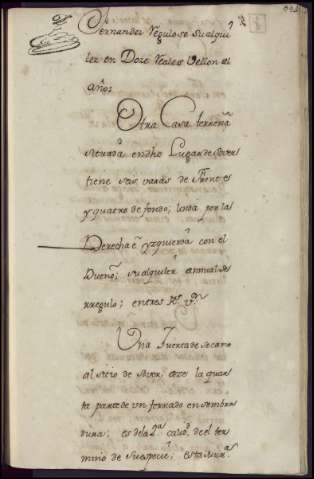 Fernandez Regulose su alqui
ler en Doze reales Vellon al
año;
Otra Casa terrena
situada en dho Lugar de
tiene seis varas de Frente
y quatro de fondo; linda por la
Derecha e Yzquierda con el
Dueño; su alquiler annual se
rregulo; en tres Rs. von
Una Huerta de secano
al sitio de haze la quar
te parte de un ferrado en sembra
dura; es de la 2ª calid. de el ter
mino de su especie; esta